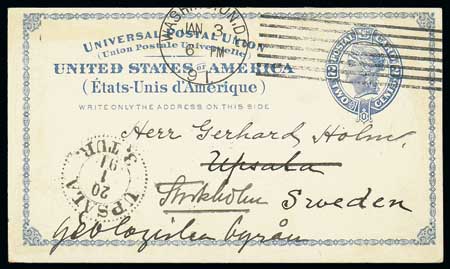 WASHINGTON, D.C.
JAN 3
6 PM
91
UNIVERSAL POSTAL UNION
(Union Postale Universelle)
UNITED STATES OF AMERICA
(États-Unis d'Amérique)
WRITE ONLY THE ADDRESS ON THIS SIDE
POSTAL CARD
TWO CENTS
Herr Gerhard Holm.
Upsala
Stockholm Sweden
Geologiska Byrån
UPSALA
20
1
91
3. TUR.